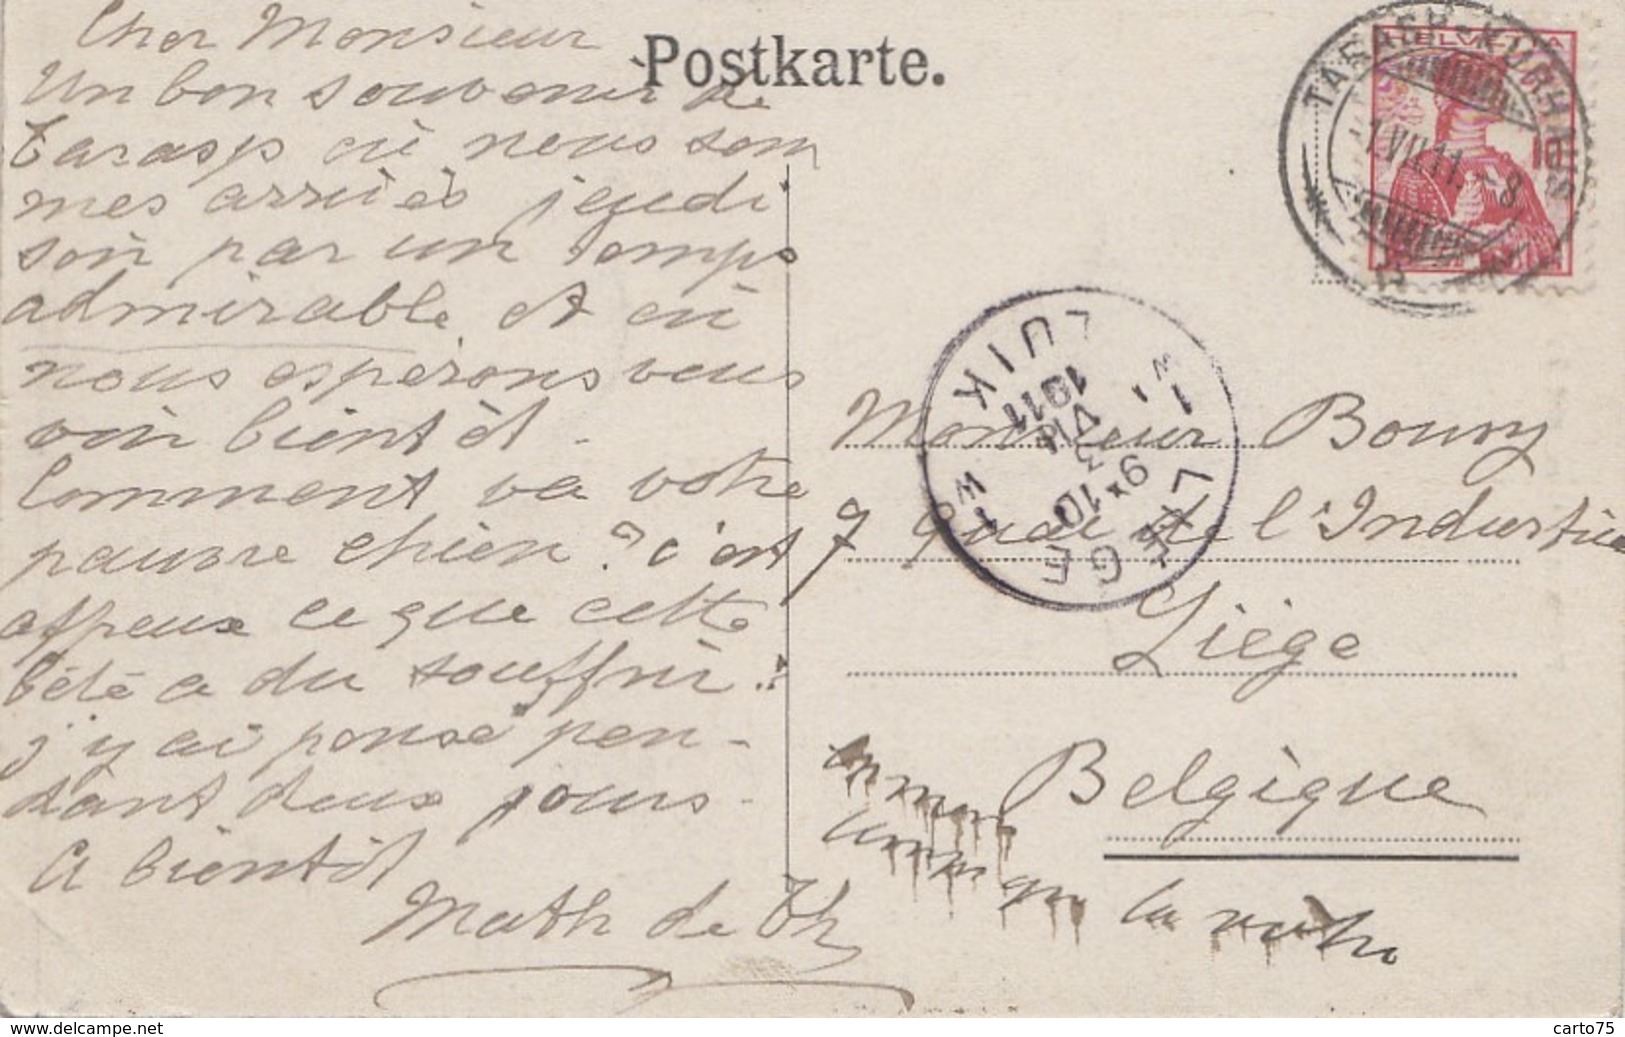 Postkarte.
Cher Monsieur
Un bon souvenir de
Tarasp où nous som
mes arrivés jeudi
soir par un temps
admirable et où
nous espérons vous
voir bientôt.
Comment va votre
pauvre chien ? c'est
affreux ce que cette
bête a du souffrir !!
j'y ai pensé pen-
dant deux jours.
A bientôt
Math de Th
TARASP-KURHAUS
1.VII.11.-8
HELVETIA
10
LUIK
1911
VII
3
9*10
LIEGE
1W
1W
Monsieur Bouvy
7 Quai de l'Industrie
Liège
Belgique
www.delcampe.net
carto75